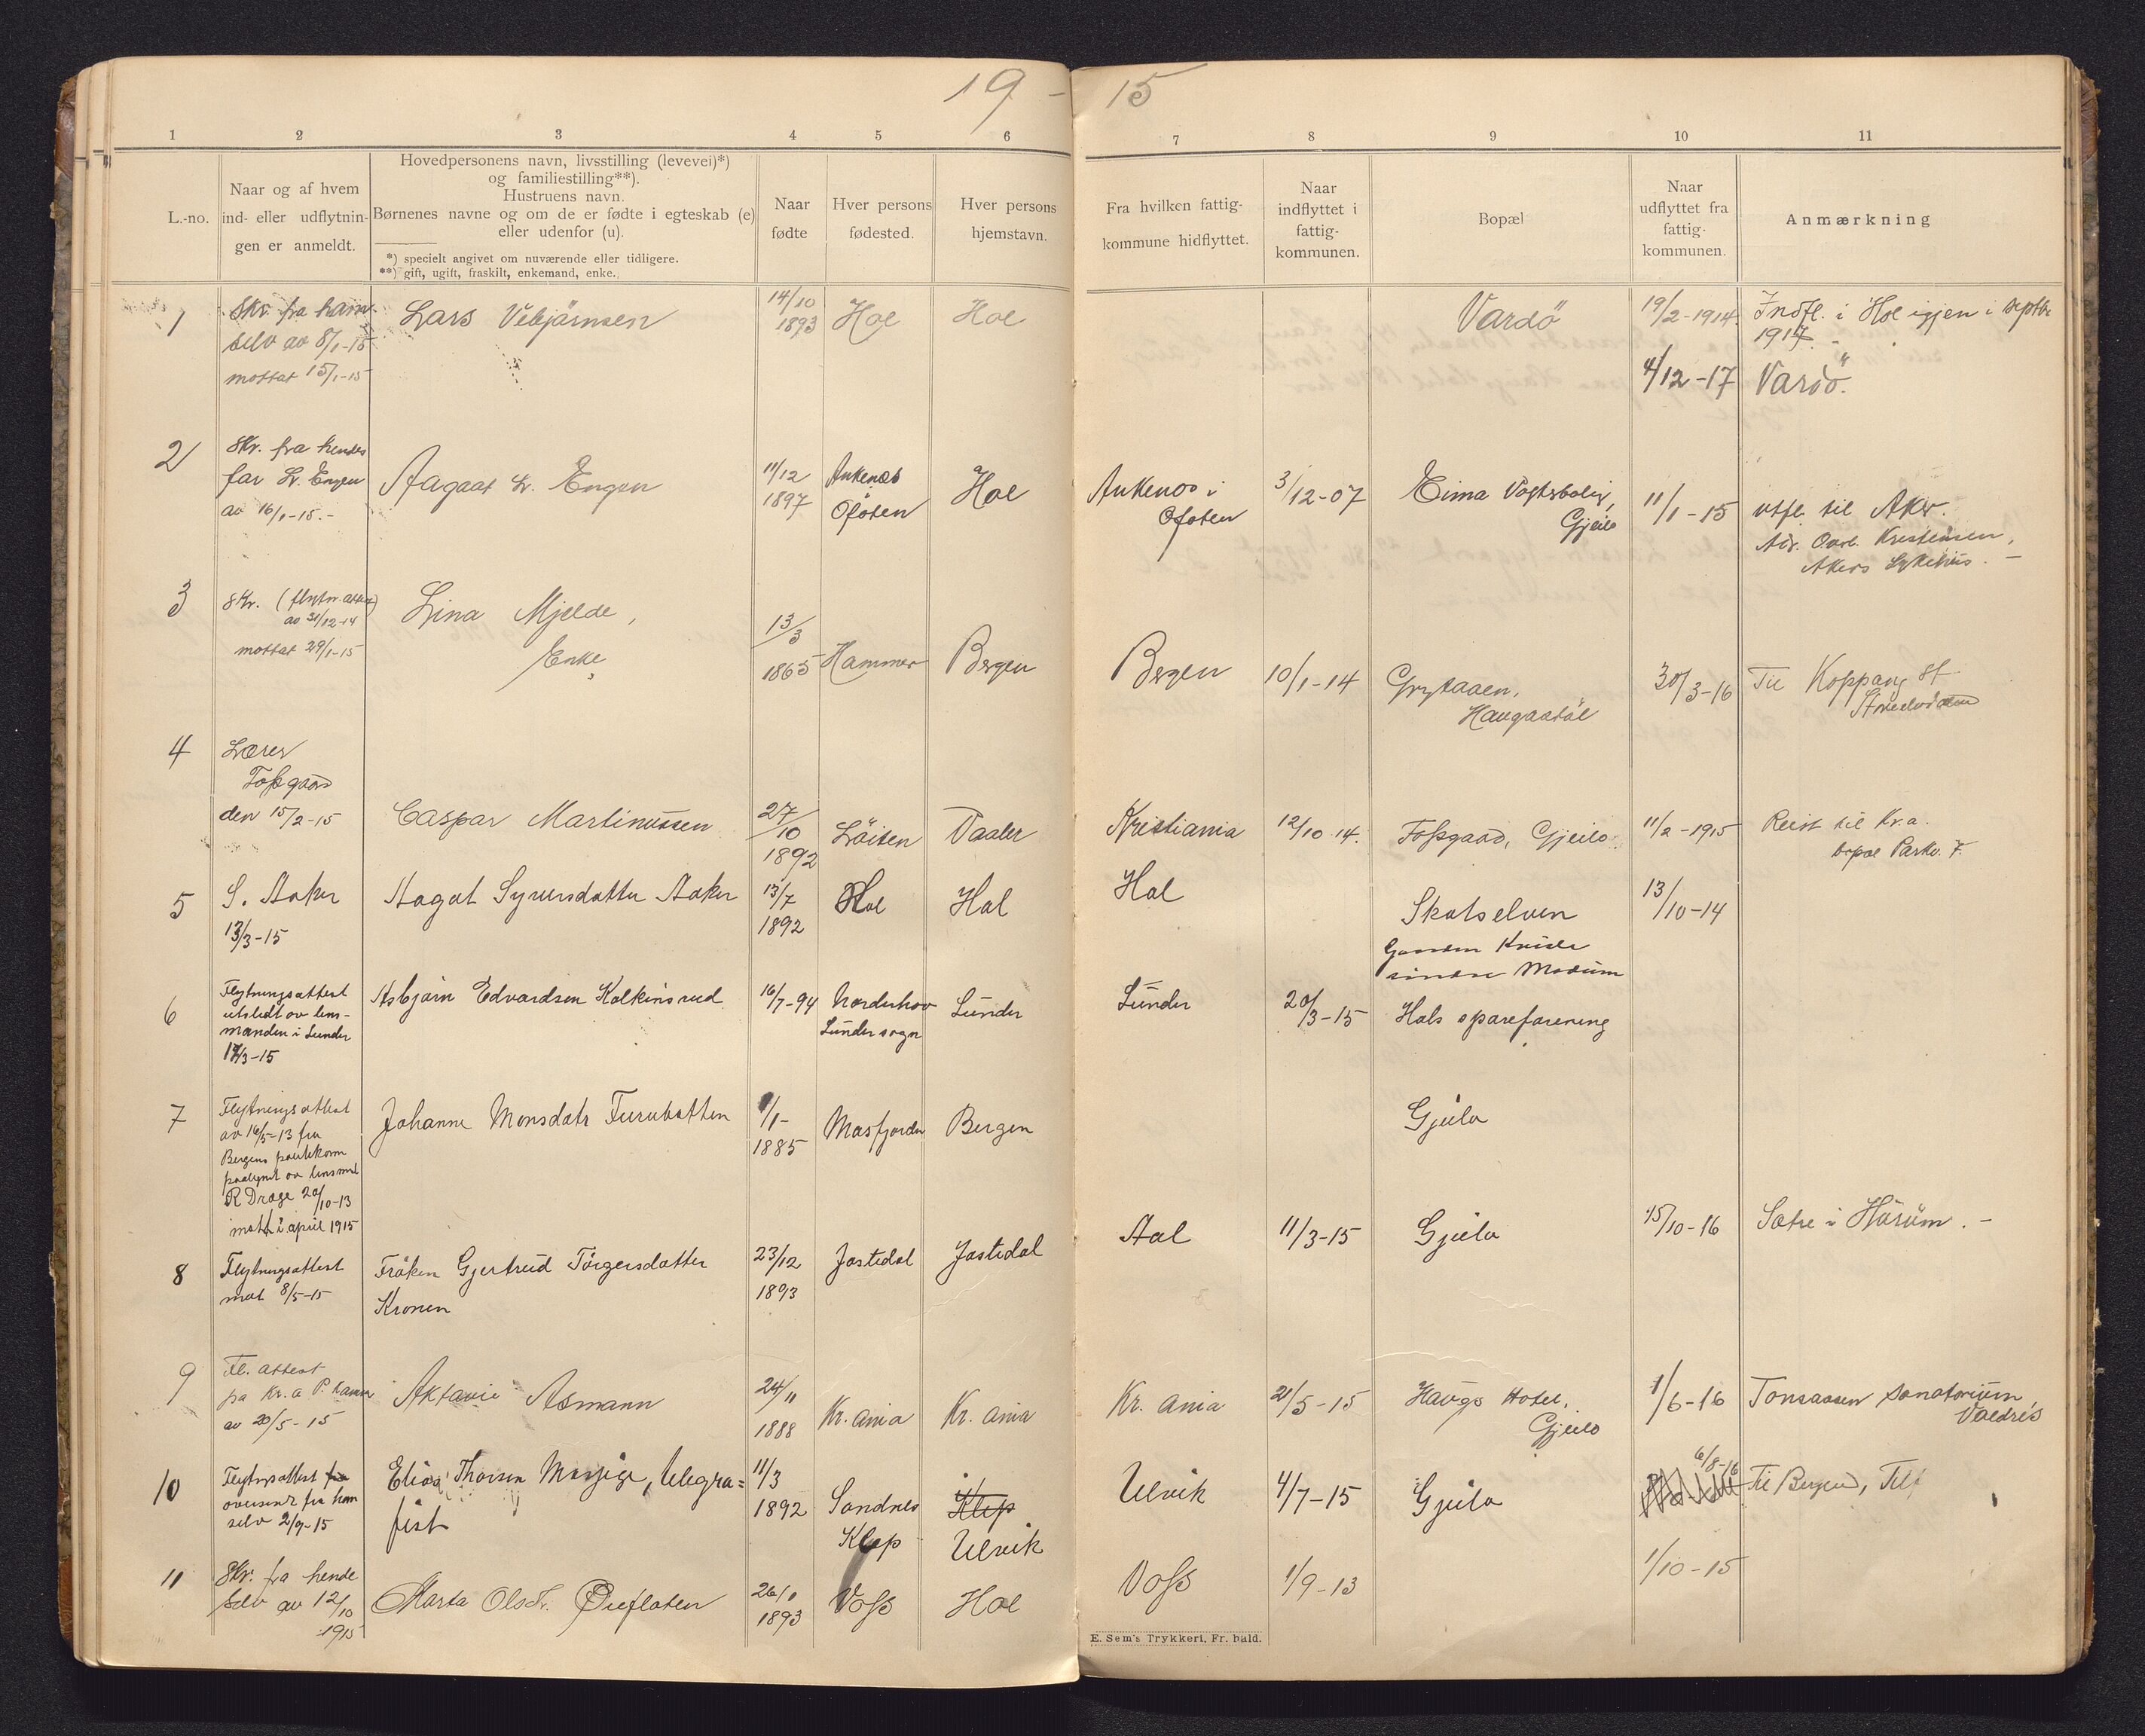 19 - 15
1 2 3 4 5 6 7 8 9 10 11
L.-no.
Naar og af hvem
ind- eller udflytnin-
gen er anmeldt.
Hovedpersonens navn, livsstilling (levevei)*)
og familiestilling**).
Hustruens navn.
Børnenes navne og om de er fødte i egteskab (e)
eller udenfor (u).
*) specielt angivet om nuværende eller tidligere.
**) gift, ugift, fraskilt, enkemand, enke.
Naar
fødte
Hver persons
fødested.
Hver persons
hjemstavn.
Fra hvilken fattig-
kommune hidflyttet.
Naar
indflyttet i
fattig-
kommunen.
Bopæl
Naar
udflyttet fra
fattig-
kommunen.
Anmærkning
1
Skr. fra ham
selv av 8/1-15
mottat 15/1-15
Lars Vebjörnsen
14/10
1893
Hol
Hol
Vardö
19/2-1914.
Indfl. i Hol igjen i septbr
1917.
4/12-17
Vardö.
2
Skr. fra hendes
far L. Engen
av 16/1-15.-
Aagaat L. Engen
11/12
1897
Ankenes
Ofoten
Hol
Ankenes i
Ofoten
3/12-07
Eima Vogterbolig,
Gjeilo
11/1-15
utfl. til Aker.
Adr. Kristensen,
Akers Sykehus. -
3
Skr. (flytn.attest)
av 31/12-14
mottat 29/1-15
Lina Mjelde,
Enke
13/3
1865
Hammer
Bergen
Bergen
10/1-14
Grytaaen,
Haugastöl
30/3-16
Til Koppang St
4
Lærer
Fossgaard
den 15/2-15
Caspar Martinussen
27/10
1892
Löiten
Vaaler
Kristiania
12/10 14.
Fossgaard, Gjeilo.
11/2-1915
Reist til Kr.a.
bopæl Parkv. 7.
5
S. Aaker
13/3-15
Aagot Syversdatter Aaker
13/7
1892
Hol
Hol
Hol
Skotselven
13/10-14
Modum
6
Flytningsattest
utstedt av lens-
manden i Lunder
17/3-15
Asbjörn Edvardsen Kolkinsrud
16/7-94
Norderhov
Lunder sogn
Lunder
Lunder
20/3-15
Hols spareforening
7
Flytningsattest
av 16/5-13 fra
Bergens politikam
paategnet av lensmd
R Drage 20/10-13
mott i april 1915
Johanne Monsdatr Furubotten
1/1-
1885
Masfjorden
Bergen
Gjeilo
8
Flytningsattest
mot 8/5-15
Fröken Gjertrud Törgersdatter
Kronen
23/12
1893
Jostedal
Jostedal
Aal
11/3-15
Gjeilo
15/10-16
Sætre i Hurum. -
9
Fl. attest
fra Kr.a P. kammer
av 20/5-15
Aktavie Asmann
24/11
1888
Kr.ania
Kr.ania
Kr.ania
21/5-15
Haugs Hotel,
Gjeilo
1/6-16
Tonsaasen sanatorium
Valdres
10
Flytngsattest fra
oversendt fra ham
selv 2/9-15
Elias Thorsen, telegra=
fist
11/3
1892
Sandnes
Klep
Klep
Ulvik
Ulvik
4/7-15
Gjeilo
6/8-16
Til Bergen, Telf
11
Skr. fra hende
selv av 12/10
1915
Marta Olsdtr. Öieflaten
26/1
1893
Voss
Hol
Voss
1/9-13
1/10-15
E. Sem's Trykkeri, Fr. hald.